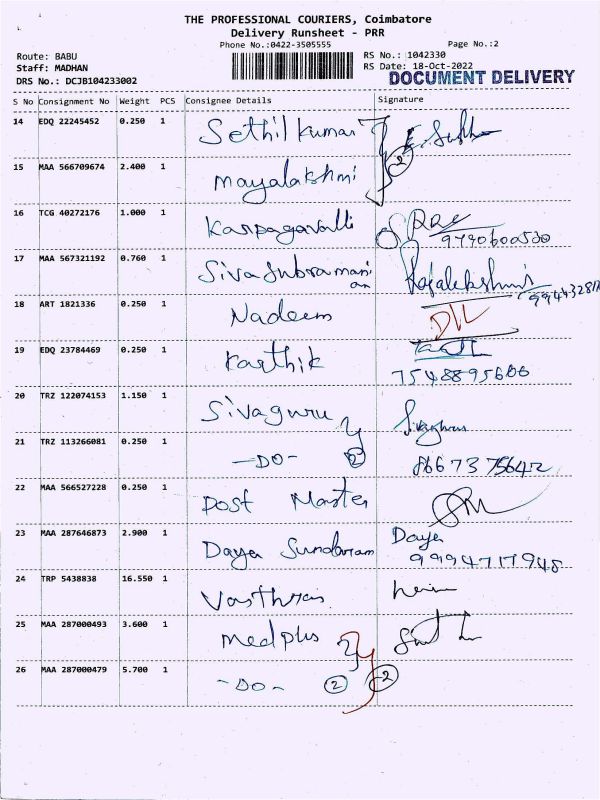 THE PROFESSIONAL COURIERS, Coimbatore
Delivery Runsheet - PRR
Phone No.:0422-3505555
Page No.:2
Route: BABU
RS No.: 1042330
Staff: MADHAN
RS Date: 18-Oct-2022
DRS No.: DCJB104233002
DOCUMENT DELIVERY
S No Consignment No Weight PCS Consignee Details Signature
14 EDQ 22245452 0.250 1 Sethil kumar
15 MAA 566709674 2.400 1 Mayalakshmi
2
16 TCG 40272176 1.000 1 Karpagavalli
9790600530
17 MAA 567321192 0.760 1 Sivasubramanian Rajalekshmi
18 ART 1821336 0.250 1 Nadeem D/L
19 EDQ 23784469 0.250 1 Karthik
7548895666
20 TRZ 122074153 1.150 1 Sivaguru
21 TRZ 113266081 0.250 1 -DO- 2
22 MAA 566527228 0.250 1 Post Master
23 MAA 287646873 2.900 1 Daya Sundaram Daya
9994717948
24 TRP 5438838 16.550 1
25 MAA 287000493 3.600 1 Medplus
26 MAA 287000479 5.700 1 -DO- 2 2